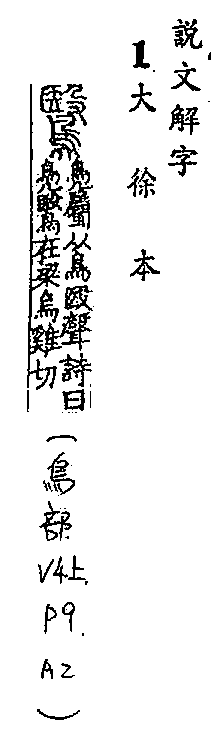 説文解字
1 大徐本
鷖
鳧屬从鳥殹聲詩曰
鳧鷖在梁烏雞切
(鳥部 V4上. P9. A2)